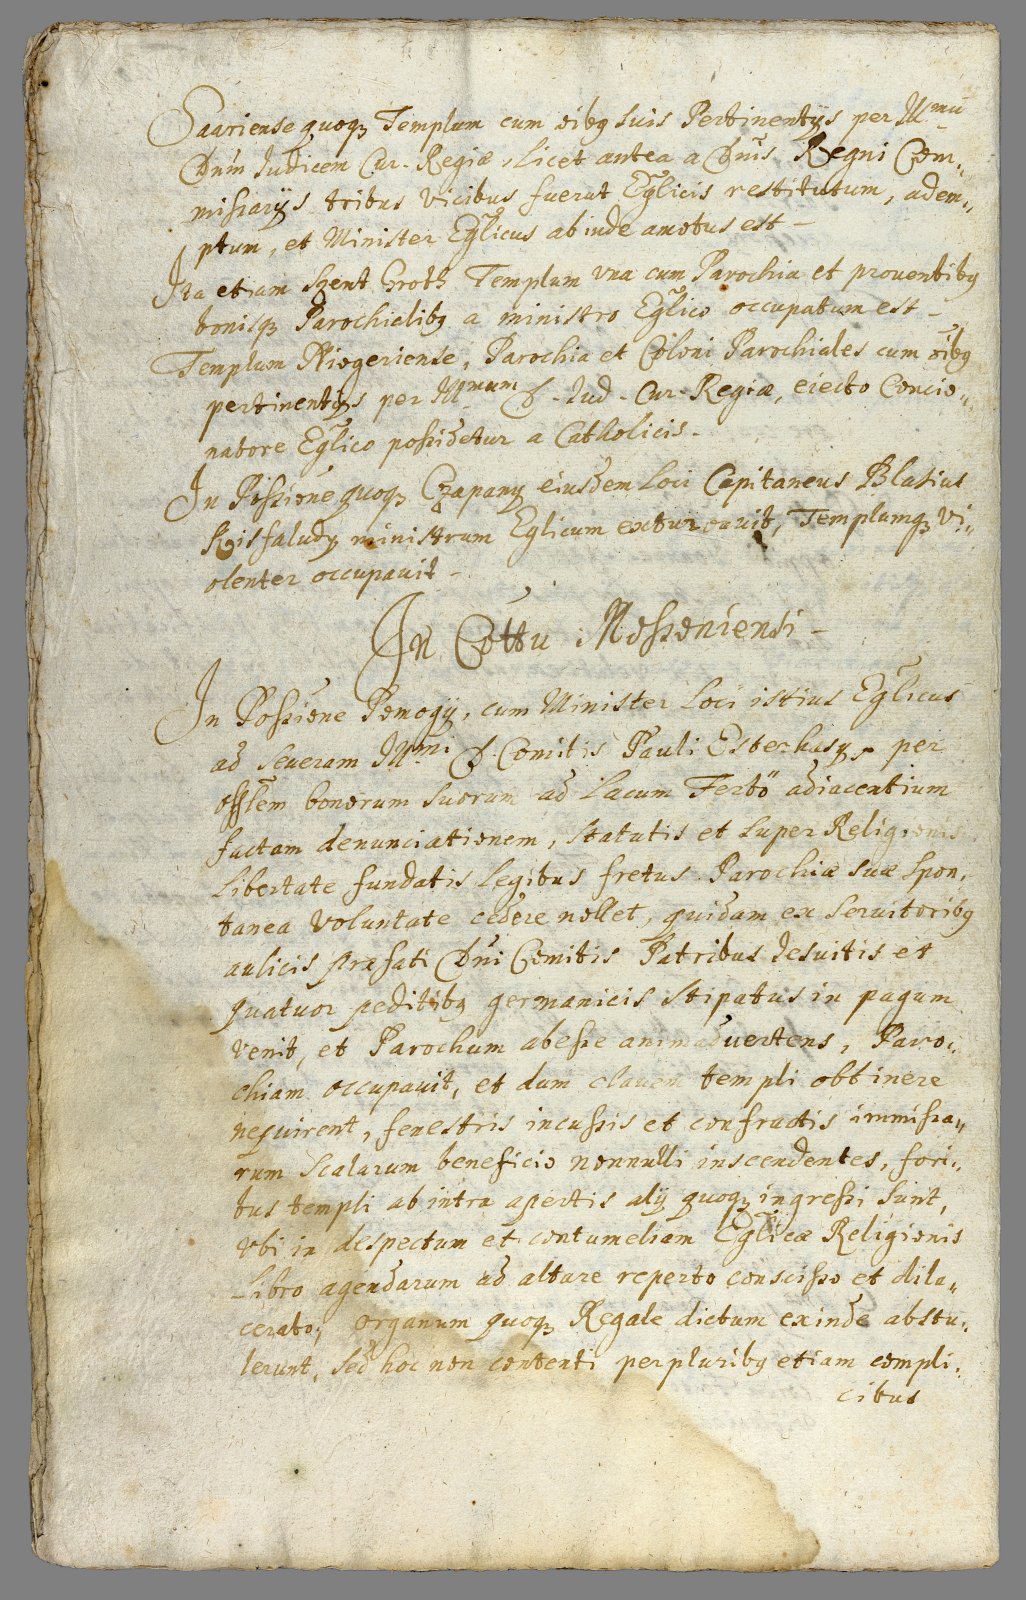 Saariense quoq3 Templum cum oibq suis Pertinentijs per Illmu
Dnm Iudicem Cur. Regiæ, licet antea a Dnis Regni Com-
missarijs tribus vicibus fuerat Eglicis restitutum, adem-
ptum, et Minister Eglicus abinde amotus est -
Ita etiam Szent Groth Templum vna cum Parochia et prouentibq
bonisq3 Parochialibq a ministro Eglico occupatum est -
Templum Niogeriense, Parochia et Coloni Parochiales cum oibq
pertinentijs per Illmum D. Iud. Cur. Regiæ, eiecto Concio-
natore Eglico possidetur a Catholicis.
In Possione quoq3 Czapany eiusdem loci Capitaneus Blasius
Kisfaludy ministrum Eglicum exturbauit, Templumq3 vi-
olenter occupauit -
In Cottu Mossoniensi -
In Possione Pomogy, cum Minister loci istius Eglicus
ad seueram Illmi D. Comitis Pauli Esterhasy, per
offlem bonorum suorum ad Lacum Fertö adiacentium
factam denunciationem, statutis et super Religionis
libertate fundatis legibus fretus Parochiæ suæ spon-
tanea voluntate cedere nollet, quidam ex seruitoribq
aulicis præfati Dni Comitis Patribus Iesuitis et
quatuor peditibq germanicis stipatus in pagum
venit, et Parochum abesse animaduertens, Paro-
chiam occupauit, et dum clauem templi obtinere
nequirent, fenestris incussis et confractis immissa-
rum scalarum beneficio nonnulli inscendentes, fori-
bus templi ab intra apertis alij quoq3 ingressi sunt,
vbi in despectum et contumeliam Eglicæ Religionis
Libro agendarum ad altare reperto conscisso et dila-
cerato, organum quoq3 Regale dictum exinde abstu-
lerunt, sed hoc non contenti per pluribq etiam compli-
cibus